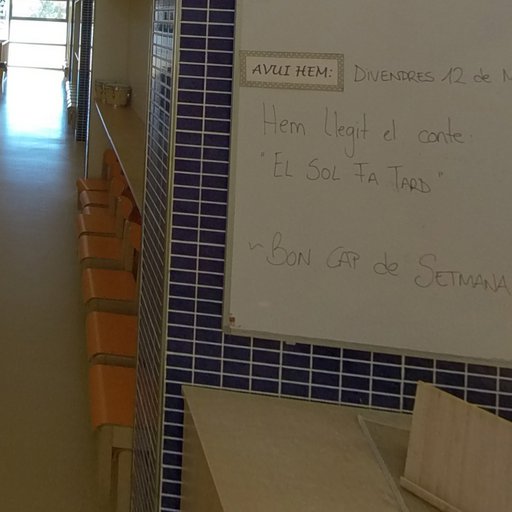 AVUI HEM: DIVENDRES 12 de M
Hem llegit el conte.
"EL SOL FA TARD"
~ BON CAP de SETMANA